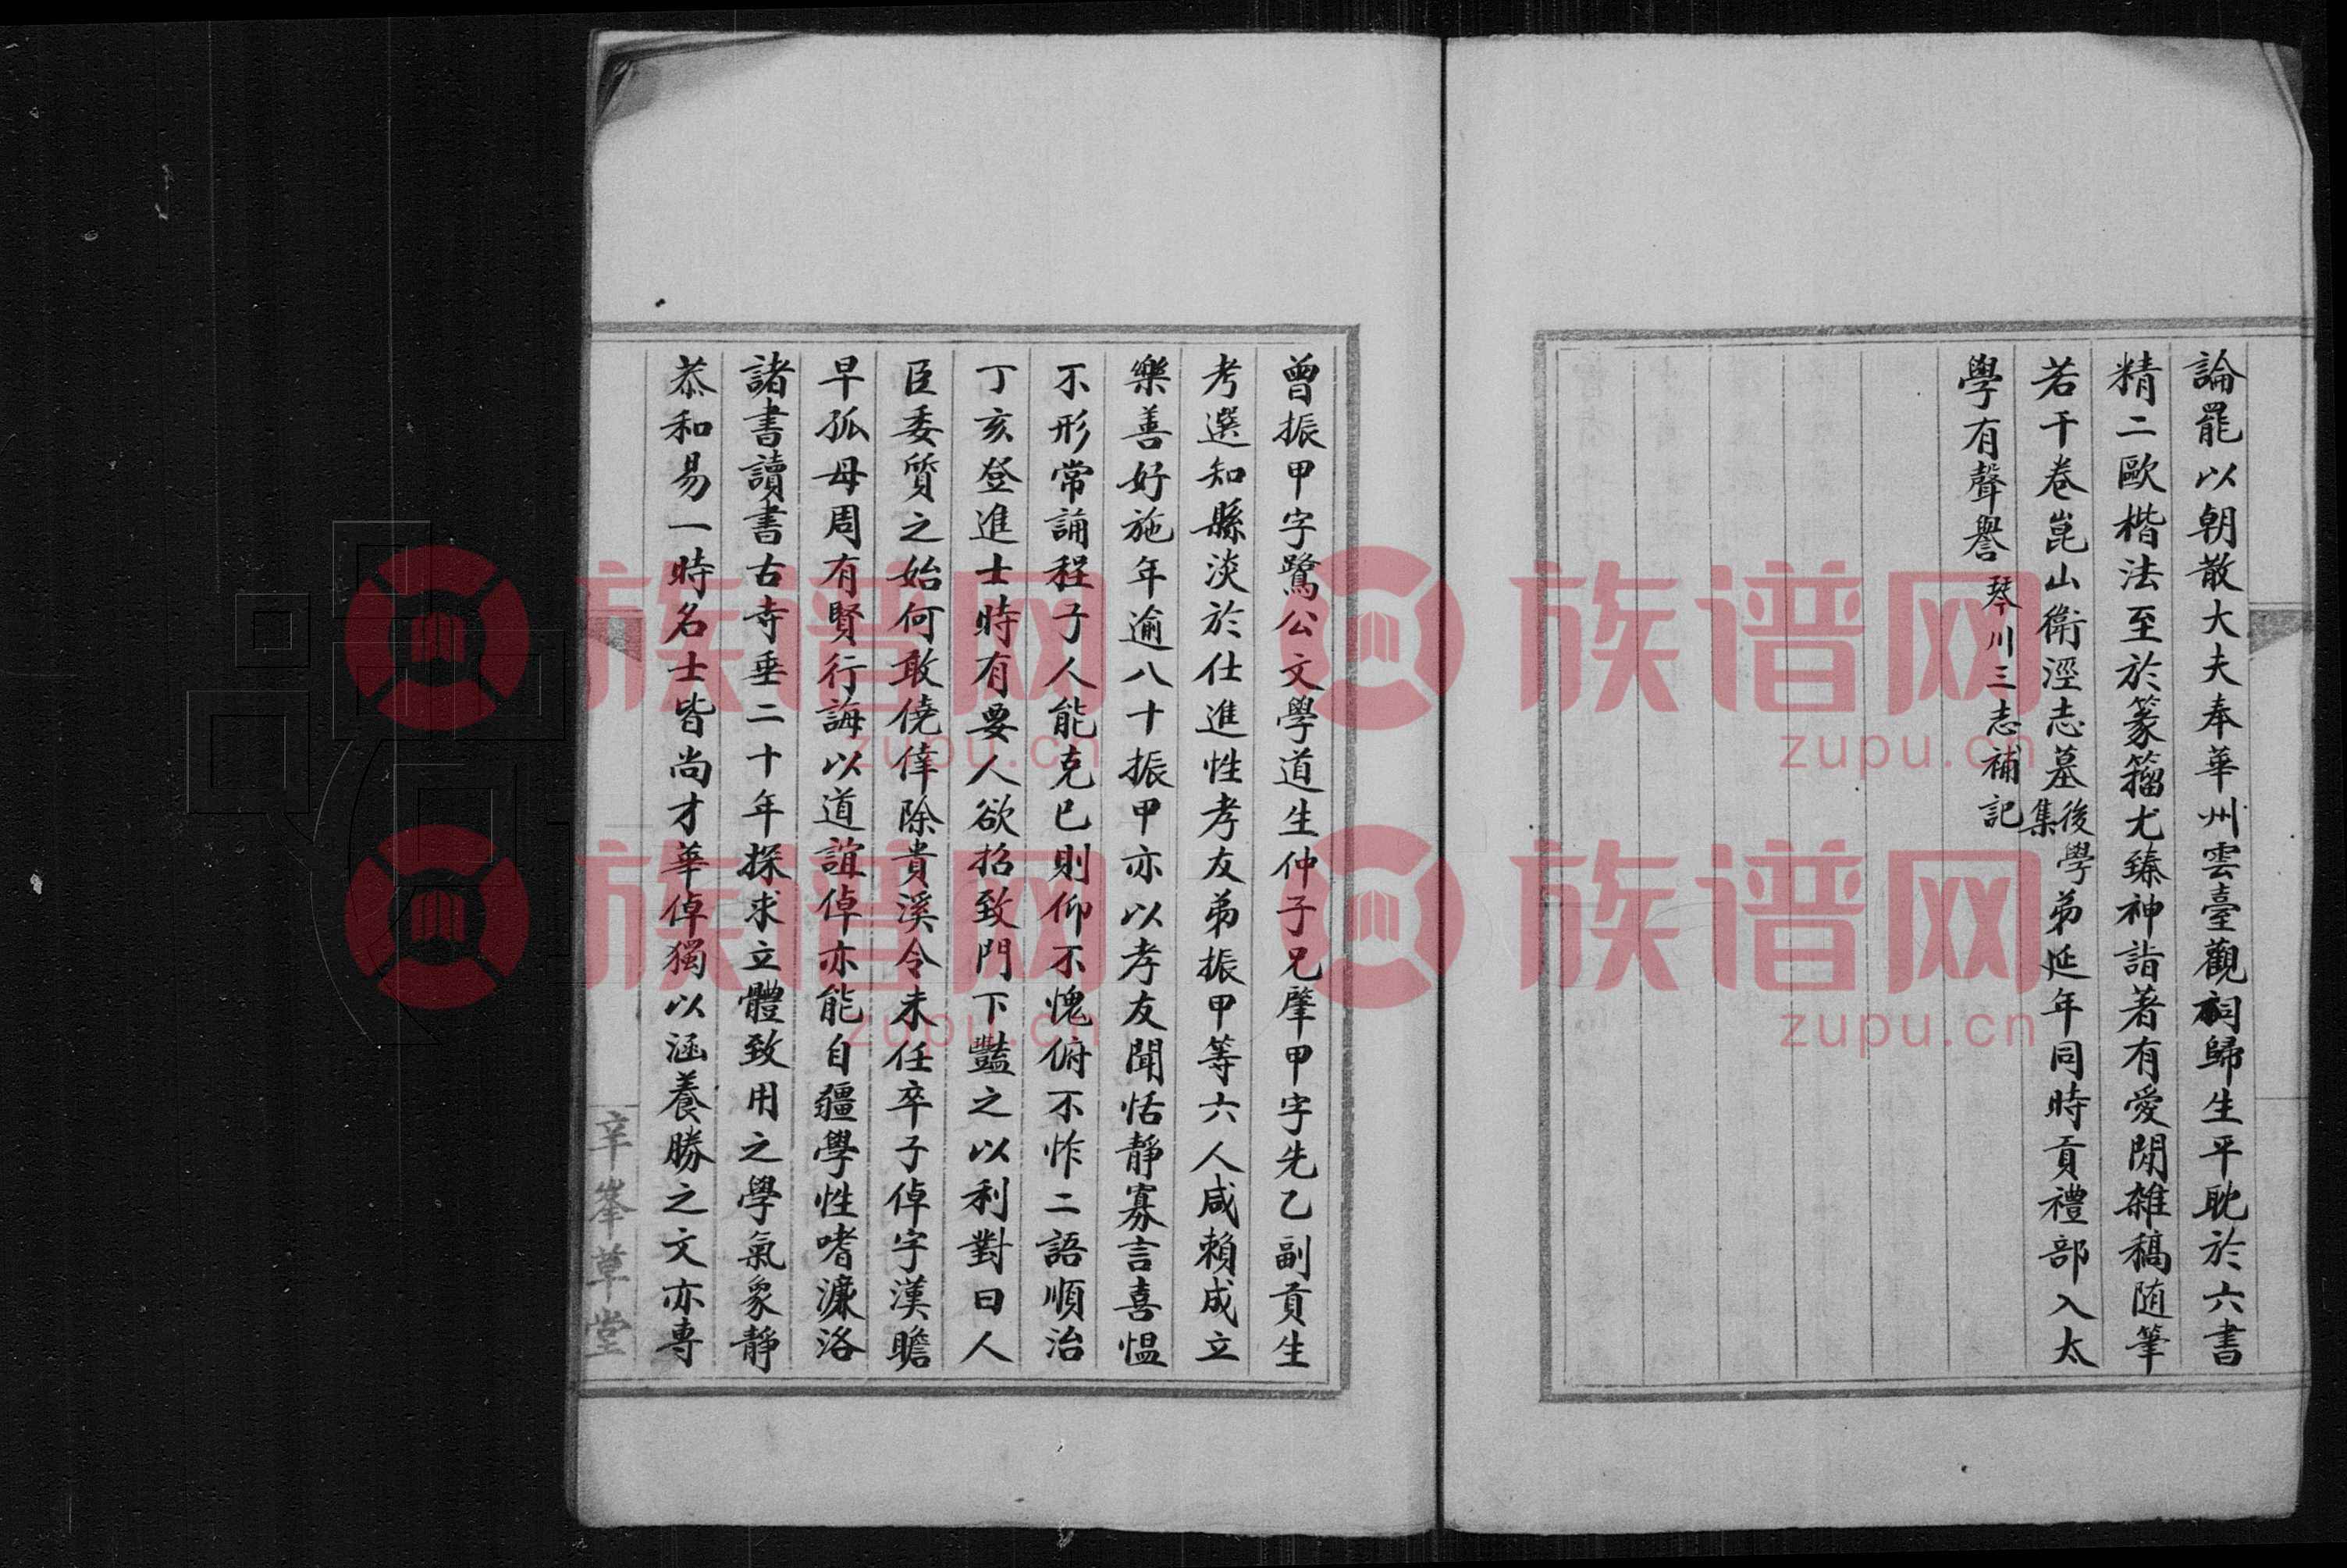 論罷以朝散大夫奉華州雲臺觀祠歸生平耽於六書
精二歐楷法至於篆籀尤臻神詣著有愛閒雜稿随筆
若干卷崑山衛涇志墓後集學弟延年同時貢禮部入太
學有聲譽琴川三志補記
曾振甲字鷺公文學道生仲子兄肇甲字先乙副貢生
考選知縣淡於仕進性孝友弟振甲等六人咸賴成立
樂善好施年逾八十振甲亦以孝友聞恬靜寡言喜愠
不形常誦程子人能克已則仰不愧俯不怍二語順治
丁亥登進士時有要人欲招致門下豔之以利對曰人
臣委質之始何敢僥倖除貴溪令未任卒子倬字漢瞻
早孤母周有賢行誨以道誼倬亦能自疆學性嗜濂洛
諸書讀書古寺垂二十年探求立體致用之學氣象靜
恭和易一時名士皆尚才華倬獨以涵養勝之文亦專
辛峯草堂
族谱网
zupu.cn
族谱网
zupu.cn
族谱网
zupu.cn
族谱网
zupu.cn